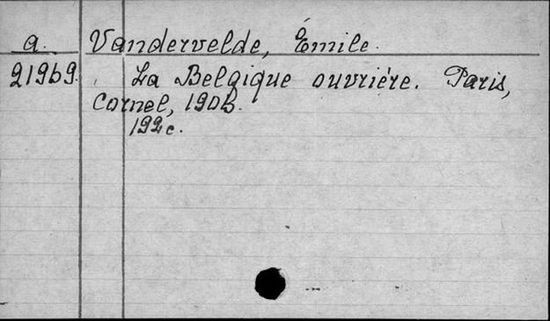 a. Vandervelde, Émile.
21969. La Belgique ouvrière. Paris,
Cornel, 1906.
192 c.